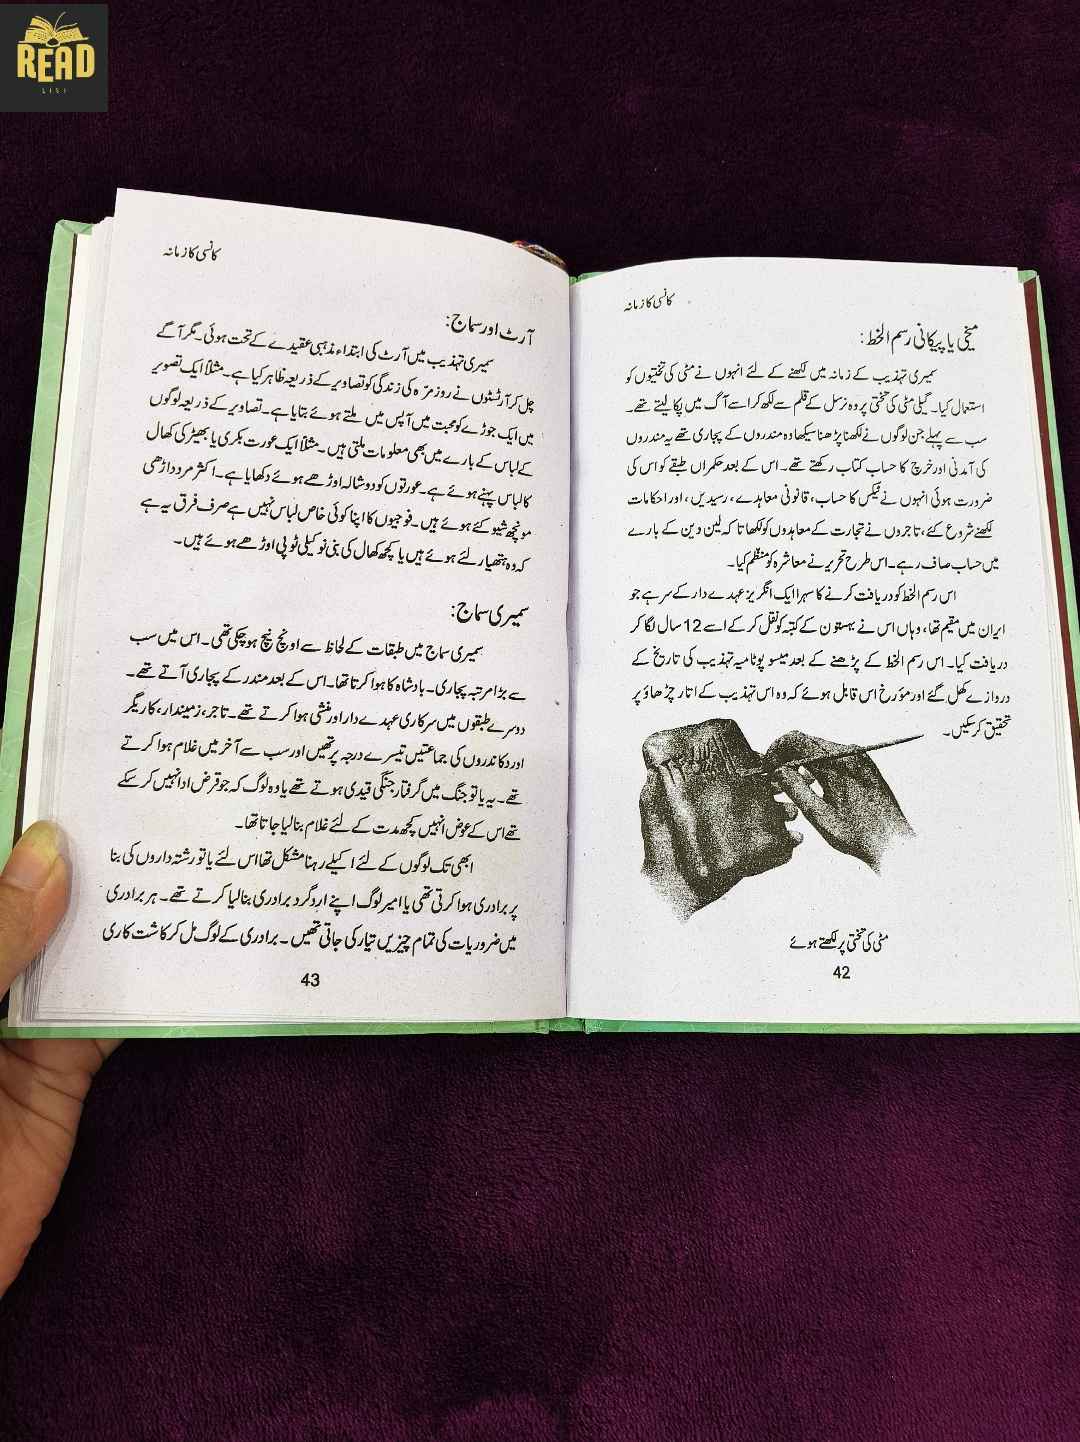 READ
LIST
کانسی کا زمانہ
میخی یا پیکانی رسم الخط:
سمیری تہذیب کے زمانہ میں لکھنے کے لئے انہوں نے مٹی کی تختیوں کو
استعمال کیا۔ گیلی مٹی کی تختی پر وہ نرسل کے قلم سے لکھ کر اسے آگ میں پکا لیتے تھے۔
سب سے پہلے جن لوگوں نے لکھنا پڑھنا سیکھا وہ مندروں کے پجاری تھے یہ مندروں
کی آمدنی اور خرچ کا حساب کتاب رکھتے تھے۔ اس کے بعد حکمراں طبقے کو اس کی
ضرورت ہوئی انہوں نے ٹیکس کا حساب، قانونی معاہدے، رسیدیں، اور احکامات
لکھنے شروع کئے، تاجروں نے تجارت کے معاہدوں کو لکھا تا کہ لین دین کے بارے
میں حساب صاف رہے۔ اس طرح تحریر نے معاشرہ کو منظم کیا۔
اس رسم الخط کو دریافت کرنے کا سہرا ایک انگریز عہدے دار کے سر ہے جو
ایران میں مقیم تھا، وہاں اس نے بہستون کے کتبہ کو نقل کر کے اسے 12 سال لگا کر
دریافت کیا۔ اس رسم الخط کے پڑھنے کے بعد میسو پوٹامیہ تہذیب کی تاریخ کے
دروازے کھل گئے اور مؤرخ اس قابل ہوئے کہ وہ اس تہذیب کے اتار چڑھاؤ پر
تحقیق کر سکیں۔
مٹی کی تختی پر لکھتے ہوئے
42
کانسی کا زمانہ
آرٹ اور سماج:
سمیری تہذیب میں آرٹ کی ابتداء مذہبی عقیدے کے تحت ہوئی۔ مگر آگے
چل کر آرٹسٹوں نے روز مرّہ کی زندگی کو تصاویر کے ذریعہ ظاہر کیا ہے۔ مثلاً ایک تصویر
میں ایک جوڑے کو محبت میں آپس میں ملتے ہوئے بتایا ہے۔ تصاویر کے ذریعہ لوگوں
کے لباس کے بارے میں بھی معلومات ملتی ہیں۔ مثلاً ایک عورت بکری یا بھیڑ کی کھال
کا لباس پہنے ہوئے ہے۔ عورتوں کو دوشالہ اوڑھے ہوئے دکھایا ہے۔ اکثر مرد داڑھی
مونچھ شیو کئے ہوئے ہیں۔ فوجیوں کا اپنا کوئی خاص لباس نہیں ہے صرف فرق یہ ہے
کہ وہ ہتھیار لئے ہوئے ہیں یا کچھ کھال کی بنی نوکیلی ٹوپی اوڑھے ہوئے ہیں۔
سمیری سماج:
سمیری سماج میں طبقات کے لحاظ سے اونچ نیچ ہو چکی تھی۔ اس میں سب
سے بڑا مرتبہ پجاری۔ بادشاہ کا ہوا کرتا تھا۔ اس کے بعد مندر کے پجاری آتے تھے۔
دوسرے طبقوں میں سرکاری عہدے دار اور منشی ہوا کرتے تھے۔ تاجر، زمیندار، کاریگر
اور دکانداروں کی جماعتیں تیسرے درجہ پر تھیں اور سب سے آخر میں غلام ہوا کرتے
تھے۔ یہ یا تو جنگ میں گرفتار جنگی قیدی ہوتے تھے یا وہ لوگ کہ جو قرض ادا نہیں کر سکے
تھے اس کے عوض انہیں کچھ مدت کے لئے غلام بنا لیا جاتا تھا۔
ابھی تک لوگوں کے لئے اکیلے رہنا مشکل تھا اس لئے یا تو رشتہ داروں کی بنا
پر برادری ہوا کرتی تھی یا امیر لوگ اپنے ارد گرد برادری بنا لیا کرتے تھے۔ ہر برادری
میں ضروریات کی تمام چیزیں تیار کی جاتی تھیں۔ برادری کے لوگ مل کر کاشت کاری
43